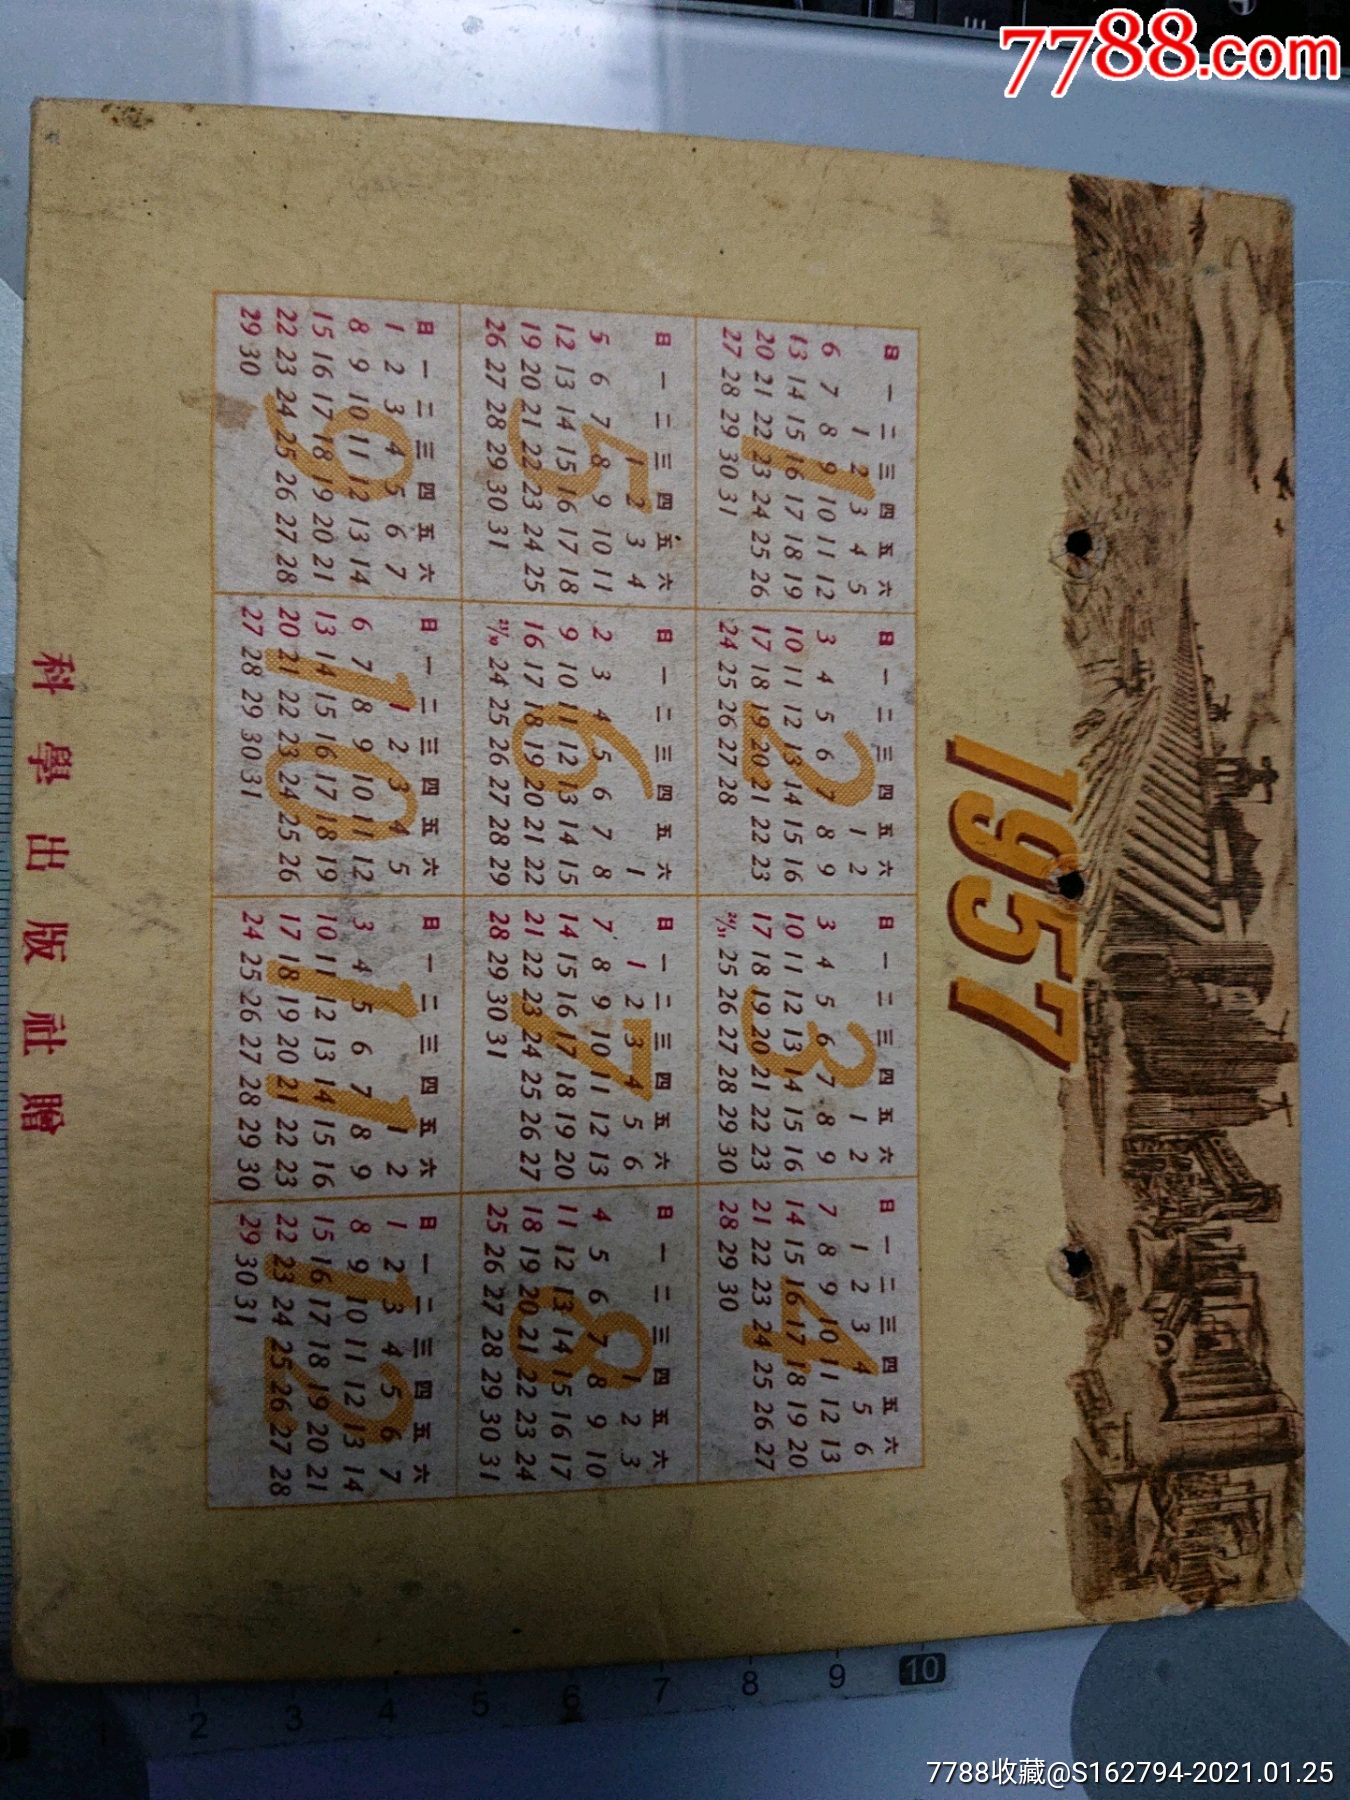 7788.com
1957
1
日 一 二 三 四 五 六
1 2 3 4 5
6 7 8 9 10 11 12
13 14 15 16 17 18 19
20 21 22 23 24 25 26
27 28 29 30 31
2
日 一 二 三 四 五 六
1 2
3 4 5 6 7 8 9
10 11 12 13 14 15 16
17 18 19 20 21 22 23
24 25 26 27 28
3
日 一 二 三 四 五 六
1 2
3 4 5 6 7 8 9
10 11 12 13 14 15 16
17 18 19 20 21 22 23
24/31 25 26 27 28 29 30
4
日 一 二 三 四 五 六
1 2 3 4 5 6
7 8 9 10 11 12 13
14 15 16 17 18 19 20
21 22 23 24 25 26 27
28 29 30
5
日 一 二 三 四 五 六
1 2 3 4
5 6 7 8 9 10 11
12 13 14 15 16 17 18
19 20 21 22 23 24 25
26 27 28 29 30 31
6
日 一 二 三 四 五 六
1
2 3 4 5 6 7 8
9 10 11 12 13 14 15
16 17 18 19 20 21 22
23/30 24 25 26 27 28 29
7
日 一 二 三 四 五 六
1 2 3 4 5 6
7 8 9 10 11 12 13
14 15 16 17 18 19 20
21 22 23 24 25 26 27
28 29 30 31
8
日 一 二 三 四 五 六
1 2 3
4 5 6 7 8 9 10
11 12 13 14 15 16 17
18 19 20 21 22 23 24
25 26 27 28 29 30 31
9
日 一 二 三 四 五 六
1 2 3 4 5 6 7
8 9 10 11 12 13 14
15 16 17 18 19 20 21
22 23 24 25 26 27 28
29 30
10
日 一 二 三 四 五 六
1 2 3 4 5
6 7 8 9 10 11 12
13 14 15 16 17 18 19
20 21 22 23 24 25 26
27 28 29 30 31
11
日 一 二 三 四 五 六
1 2
3 4 5 6 7 8 9
10 11 12 13 14 15 16
17 18 19 20 21 22 23
24 25 26 27 28 29 30
12
日 一 二 三 四 五 六
1 2 3 4 5 6 7
8 9 10 11 12 13 14
15 16 17 18 19 20 21
22 23 24 25 26 27 28
29 30 31
科學出版社贈
1 2 3 4 5 6 7 8 9 10
7788收藏@S162794-2021.01.25